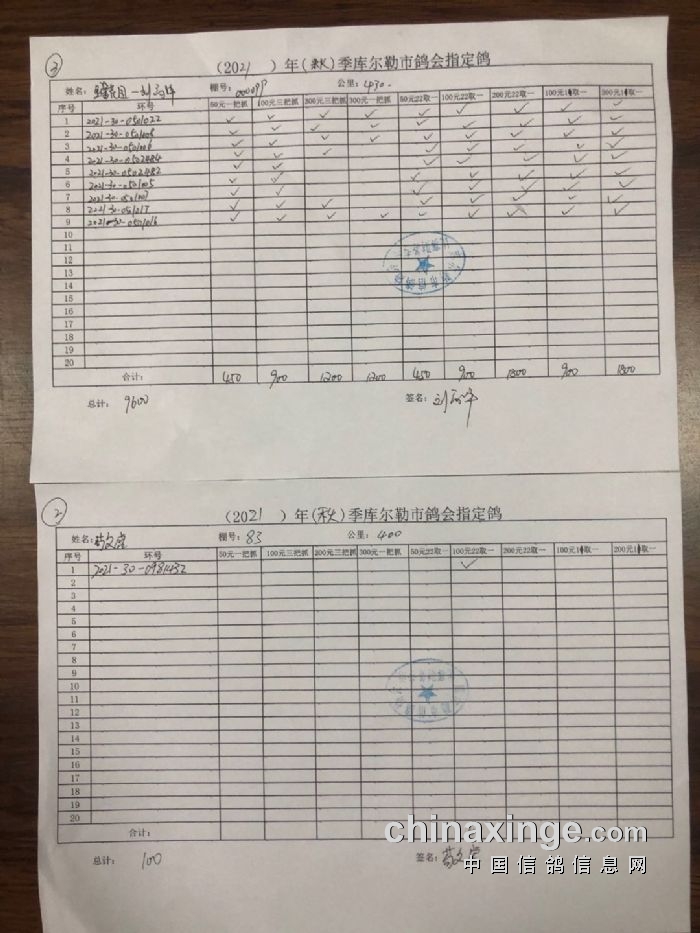 ③
(2021 )年(秋)季库尔勒市鸽会指定鸽
姓名: 棚号: 000097 公里: 430.
序号 环号 50元一把抓 100元三把抓 200元三把抓 300元一把抓 50元22取一 100元22取一 200元22取一 100元1 取一 300元1 取一
1 2021-30-0501022 ✓ ✓ ✓ ✓ ✓ ✓ ✓ ✓
2 2021-30-0501008
3 2021-30-0501006
4 2021-30-0502484
5 2021-30-0502482
6 2021-30-0501005
7 2021-30-0501007
8 2021-30-0501017
9 2021-30-0501016
10
11
12
13
14
15
16
17
18
19
20
合计: 450 900 1200 1200 450 900 1800 900 1800
总计: 9600 签名:
②
(2021 )年(秋)季库尔勒市鸽会指定鸽
姓名: 棚号: 83 公里: 400
序号 环号 50元一把抓 100元三把抓 200元三把抓 300元一把抓 50元22取一 100元22取一 200元22取一 100元1 取一 200元1 取一
1 2021-30-0981432 ✓
2
3
4
5
6
7
8
9
10
11
12
13
14
15
16
17
18
19
20
合计:
总计: 100 签名:
chinaxinge.com
中国信鸽信息网